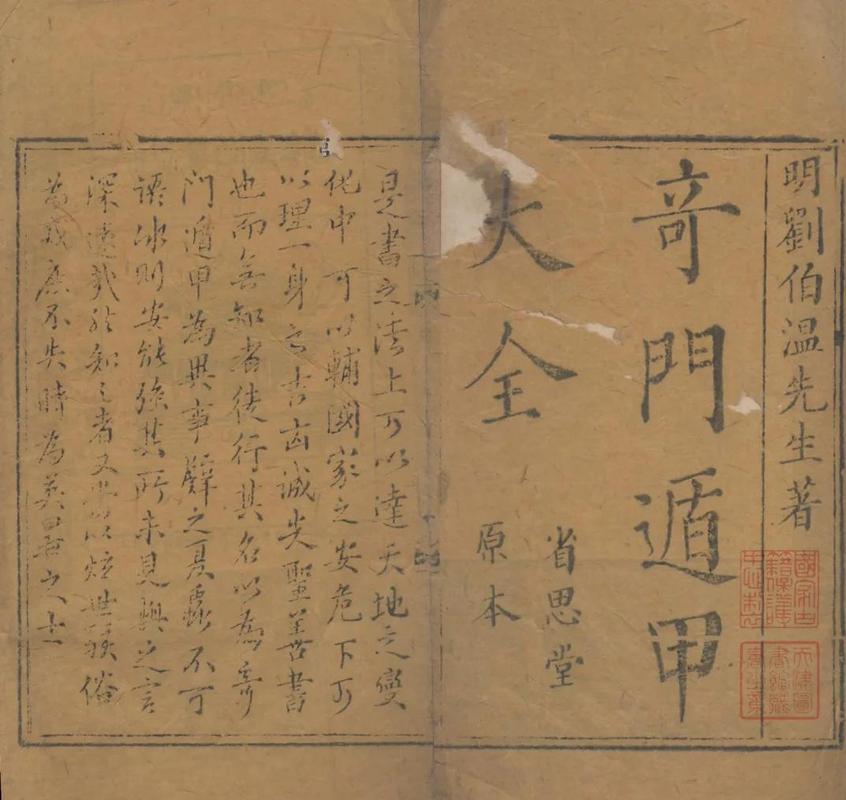 明劉伯溫先生著
奇門遁甲
大全
省思堂
原本
是書之法上可以達天地之變
化中可以輔國家之安危下可
以理一身之吉凶誠先聖善書
也而無知者徒行其名以為奇
門遁甲為異事譬之夏蟲不可
語冰則安能強其所未見與之言
深遠哉於知之者又當以炫世駭俗
為戒庶不失時為英君之士
天津圖
書館藏